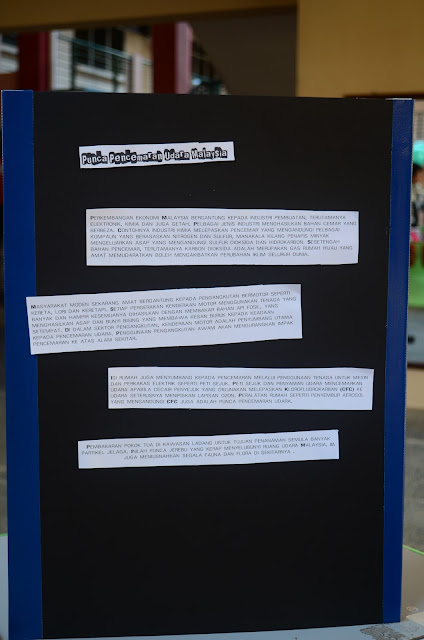 Punca Pencemaran Udara Malaysia
PERKEMBANGAN EKONOMI MALAYSIA BERGANTUNG KEPADA INDUSTRI PEMBUATAN, TERUTAMANYA
ELEKTRONIK, KIMIA DAN JUGA GETAH. PELBAGAI JENIS INDUSTRI MENGHASILKAN BAHAN CEMAR YANG
BERBEZA. CONTOHNYA INDUSTRI KIMIA MELEPASKAN PENCEMAR YANG MENGANDUNGI PELBAGAI
KOMPAUN YANG BERASASKAN NITROGEN DAN SULFUR, MANAKALA KILANG PENAPIS MINYAK
MENGELUARKAN ASAP YANG MENGANDUNGI SULFUR DIOKSIDA DAN HIDROKARBON. SESETENGAH
BAHAN PENCEMAR, TERUTAMANYA KARBON DIOKSIDA ADALAH MERUPAKAN GAS RUMAH HIJAU YANG
AMAT MEMUDARATKAN BOLEH MENGAKIBATKAN PERUBAHAN IKLIM SELURUH DUNIA.
MASYARAKAT MODEN SEKARANG AMAT BERGANTUNG KEPADA PENGANGKUTAN BERMOTOR SEPERTI
KERETA, LORI DAN KERETAPI. SETIAP PERGERAKAN KENDERAAN MOTOR MENGGUNAKAN TENAGA YANG
BANYAK DAN HAMPIR KESEMUANYA DIHASILKAN DENGAN MEMBAKAR BAHAN API FOSIL, YANG
MENGHASILKAN ASAP DAN BUNYI BISING YANG MEMBAWA KESAN BURUK KEPADA KEADAAN
SETEMPAT. DI DALAM SEKTOR PENGANGKUTAN, KENDERAAN MOTOR ADALAH PENYUMBANG UTAMA
KEPADA PENCEMARAN UDARA. PENGGUNAAN PENGANGKUTAN AWAM AKAN MENGURANGKAN IMPAK
PENCEMARAN KE ATAS ALAM SEKITAR.
ISI RUMAH JUGA MENYUMBANG KEPADA PENCEMARAN MELALUI PENGGUNAAN TENAGA UNTUK MESIN
DAN PERKAKAS ELEKTRIK SEPERTI PETI SEJUK. PETI SEJUK DAN PENYAMAN UDARA MENCEMARKAN
UDARA APABILA CECAIR PENYEJUK YANG DIGUNAKAN MELEPASKAN KLOROFLUOROKARBAN (CFC) KE
UDARA SETERUSNYA MENIPISKAN LAPISAN OZON. PERALATAN RUMAH SEPERTI PENYEMBUR AEROSOL
YANG MENGANDUNGI CFC JUGA ADALAH PUNCA PENCEMARAN UDARA.
PEMBAKARAN POKOK TUA DI KAWASAN LADANG UNTUK TUJUAN PENANAMAN SEMULA BANYAK
PARTIKEL JELAGA. INILAH PUNCA JEREBU YANG KERAP MENYELUBUNGI RUANG UDARA MALAYSIA. IA
JUGA MEMUSNAHKAN SEGALA FAUNA DAN FLORA DI SEKITARNYA.